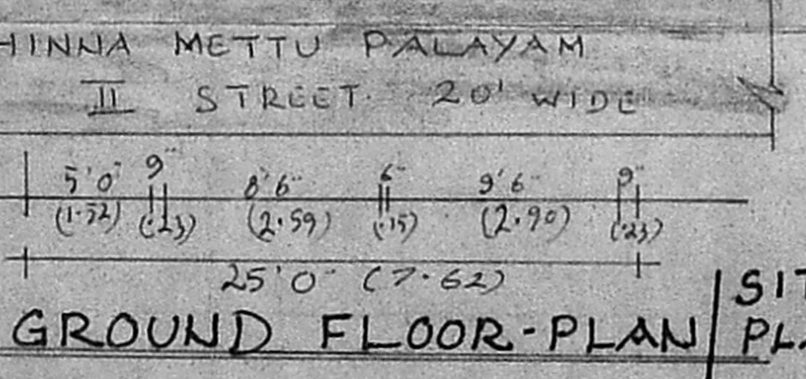 HINNA METTU PALAYAM
II STREET. 20' WIDE
5'0" 9" 8'6" 6" 9'6" 9"
(1.52) (.23) (2.59) (.15) (2.90) (.23)
25'0" (7.62)
GROUND FLOOR-PLAN
SIT
PLA